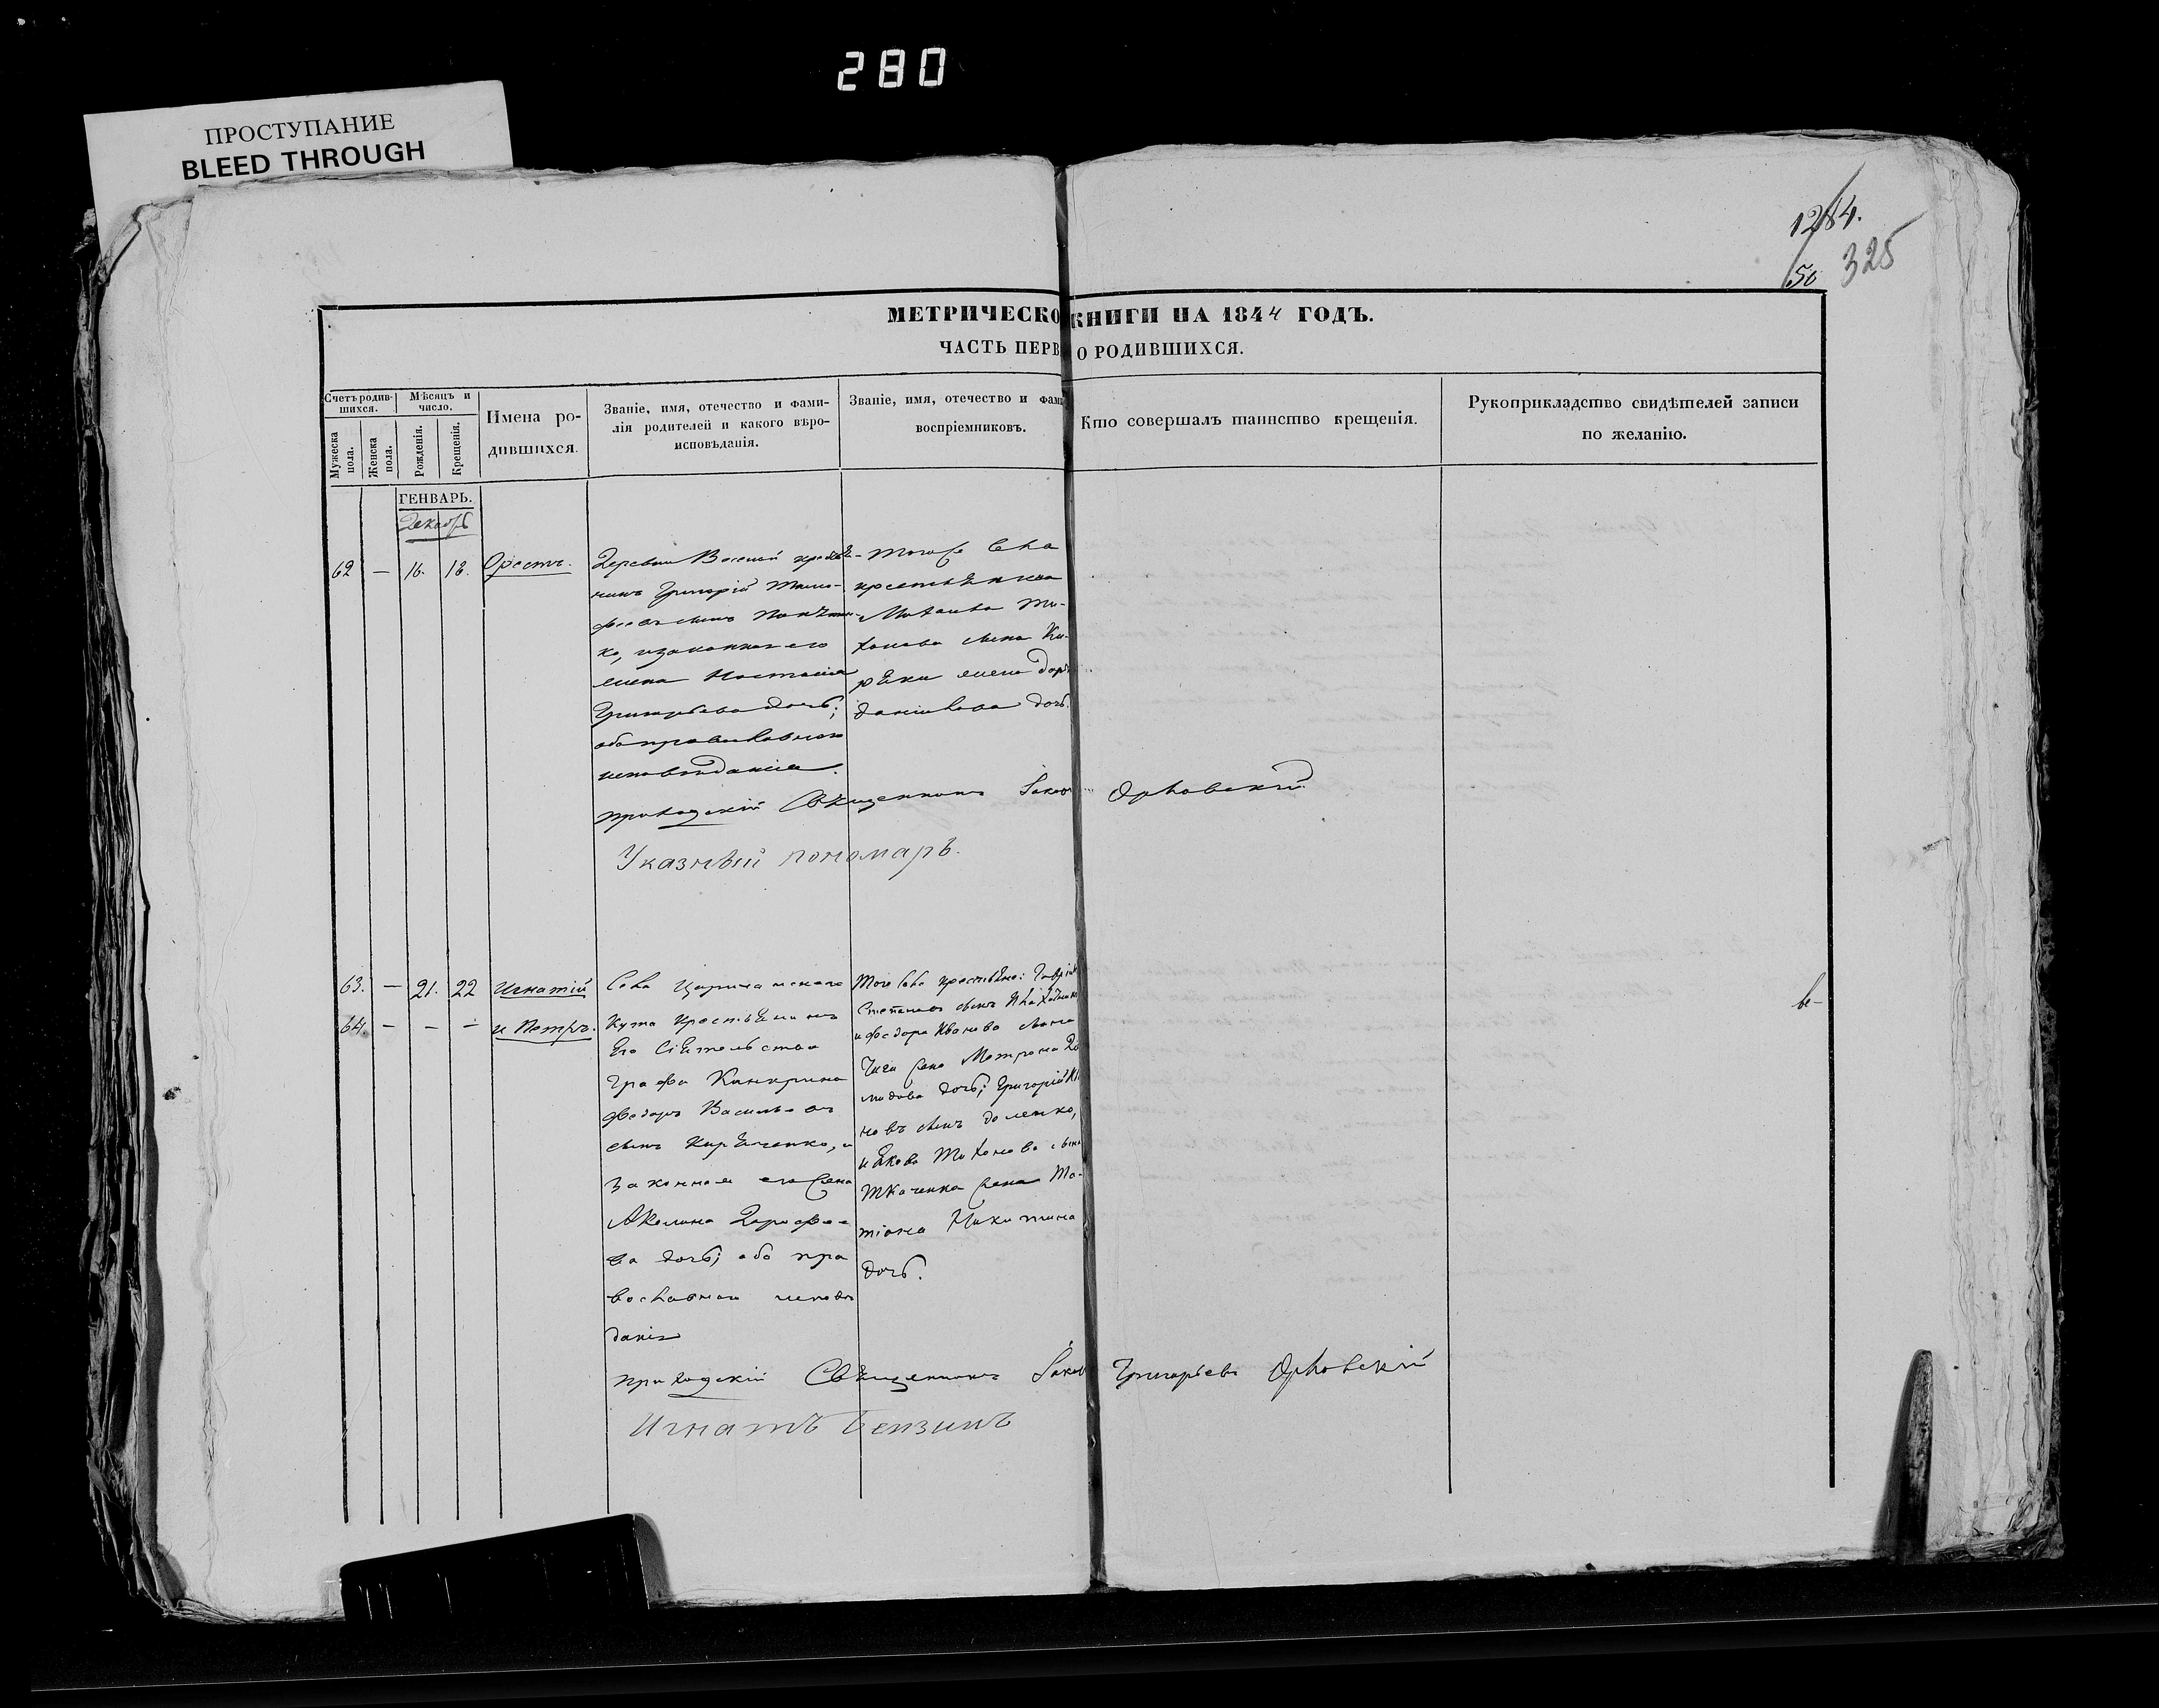 280
ПРОСТУПАНИЕ
BLEED THROUGH
1284.
50
325
МЕТРИЧЕСКО КНИГИ НА 1844 ГОДЪ.
ЧАСТЬ ПЕРВ О РОДИВШИХСЯ.
Счетъ родив-
шихся.
Мужеска пола.
Женска пола.
Мѣсяцъ и
число.
Рожденія.
Крещенія.
Имена ро-
дившихся.
Званіе, имя, отечество и фами-
лія родителей и какого вѣро-
исповѣданія.
Званіе, имя, отечество и фами
воспріемниковъ.
Кто совершалъ таинство крещенія.
Рукоприкладство свидѣтелей записи
по желанію.
ГЕНВАРЬ.
Декабрь
62 — 16. 18. Орестъ.
Деревни
Григорій Тимо-
феевъ сынъ
ко, и законная его
жена
Григорьева дочь;
оба православного
исповѣданія.
того села
крестьянина
Михаила Ти-
хонова сына Ки-
рѣки жена
дочь.
приходскій Священникъ Іаков Орловскій
Указный пономарь.
63. — 21. 22 Игнатій
64. — — — и Петръ.
Села Царичанского
Кута крестьянинъ
Его Сіятельства
Графа Канкрина
Федоръ Васильевъ
сынъ Кириченко, и
Законная его жена
Акилина Дорофее-
ва дочь; оба пра
вославного исповѣ
данія
того села крестьяне:
Степановъ сынъ
и Федора Иванова сына
жена Матрона
дочь; Григорій
новъ сынъ
и Якова Тихонова сына
Ткаченка жена Та-
тіана Никитина
дочь.
приходскій Священникъ Іаков Григорьевъ Орловскій
Игнатъ